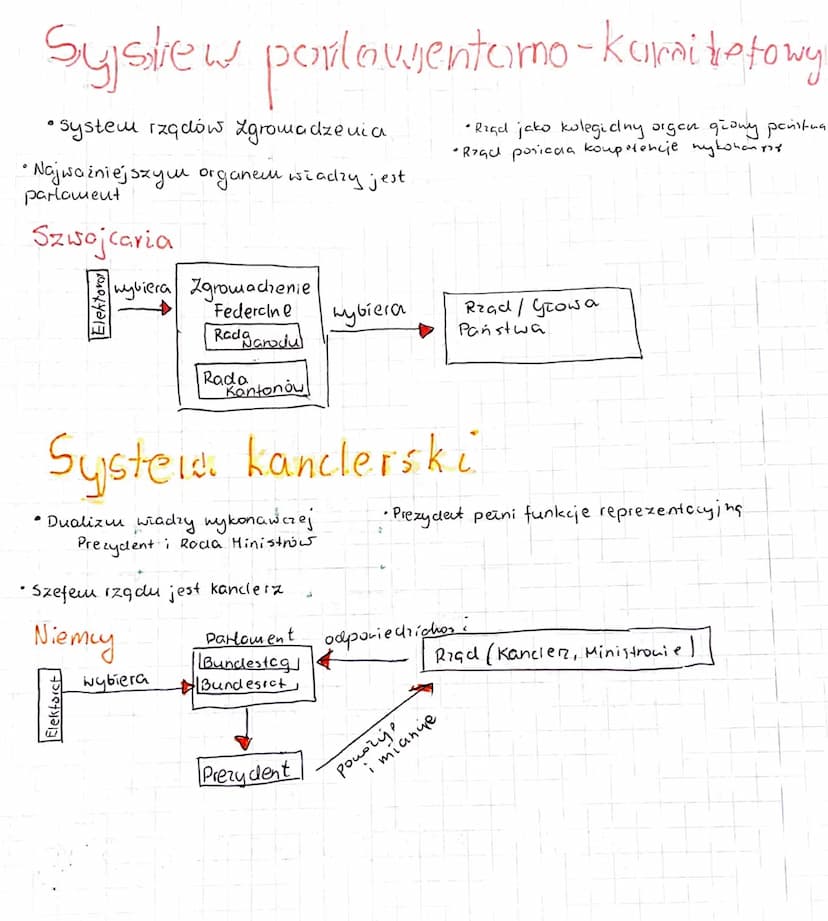 System parlamentarno-komitetowy
• System rządów zgromadzenia
• Rząd jako kolegialny organ głowy państwa
• Rząd posiada kompetencje wykonawcze
• Najważniejszym organem władzy jest
parlament
Szwajcaria
Elektorat
wybiera
Zgromadzenie
Federalne
Rada
Narodu
Rada
Kantonów
wybiera
Rząd / Głowa
Państwa
System kanclerski
• Dualizm władzy wykonawczej
Prezydent i Rada Ministrów
• Prezydent pełni funkcje reprezentacyjną
• Szefem rządu jest kanclerz
Niemcy
Elektorat
wybiera
Parlament
Bundestag
Bundesrat
odpowiedzialność
Rząd (Kanclerz, Ministrowie)
Prezydent
powołuje
i mianuje